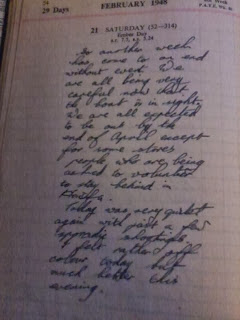 29 Days
FEBRUARY 1948
21 SATURDAY (52—314)
So another week
has come to an end
without event. We
are all being very
careful now that
the boat is in sight.
We are all expected
to be out by the
end of April except
for some stores
people, who are being
asked to volunteer
to stay behind in
Today was very quiet
again with just a few
sporadic shootings
I felt rather off
colour today but
much better this
evening.